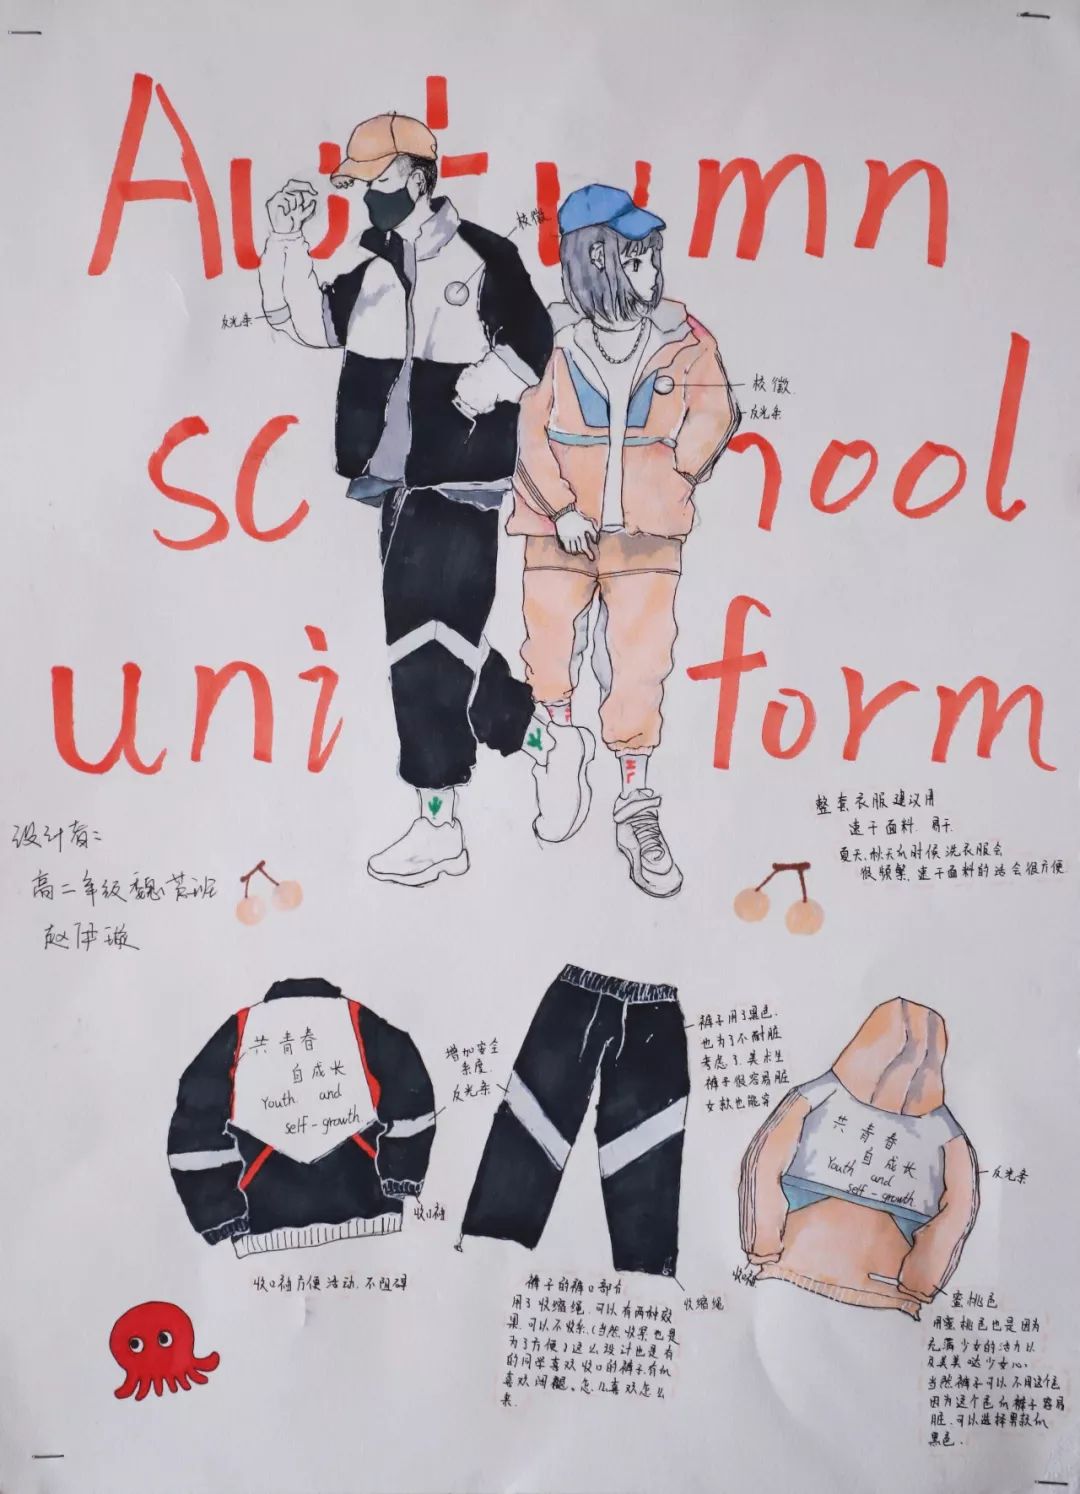 Autumn
school
uniform
校徽
反光条
校徽
反光条
整套衣服建议用
速干面料.易干.
夏天、秋天的时候洗衣服会
很频繁,速干面料的话会很方便
设计者:
高二年级魏
赵伊璇
共青春
自成长
Youth and
self-growth.
增加安全
系度.
反光条
收口袖
收口袖方便活动.不阻碍
裤子用了黑色.
也为了不耐脏
考虑了.美术生
裤子很容易脏
女款也能穿
裤子的裤口部分
用了收缩绳.可以有两种效
果.可以不收系.(当然收紧也是
为了方便)这么设计也是有
的同学喜欢收口的裤子有的
喜欢阔腿。怎么喜欢怎么
来.
收缩绳
共青春
自成长
Youth and
self-growth.
反光条
收口袖
蜜桃色
用蜜桃色也是因为
充满少女的活力以
及美美哒少女心.
当然裤子可以不用这个色
因为这个色的裤子容易
脏.可以选择男款的
黑色.